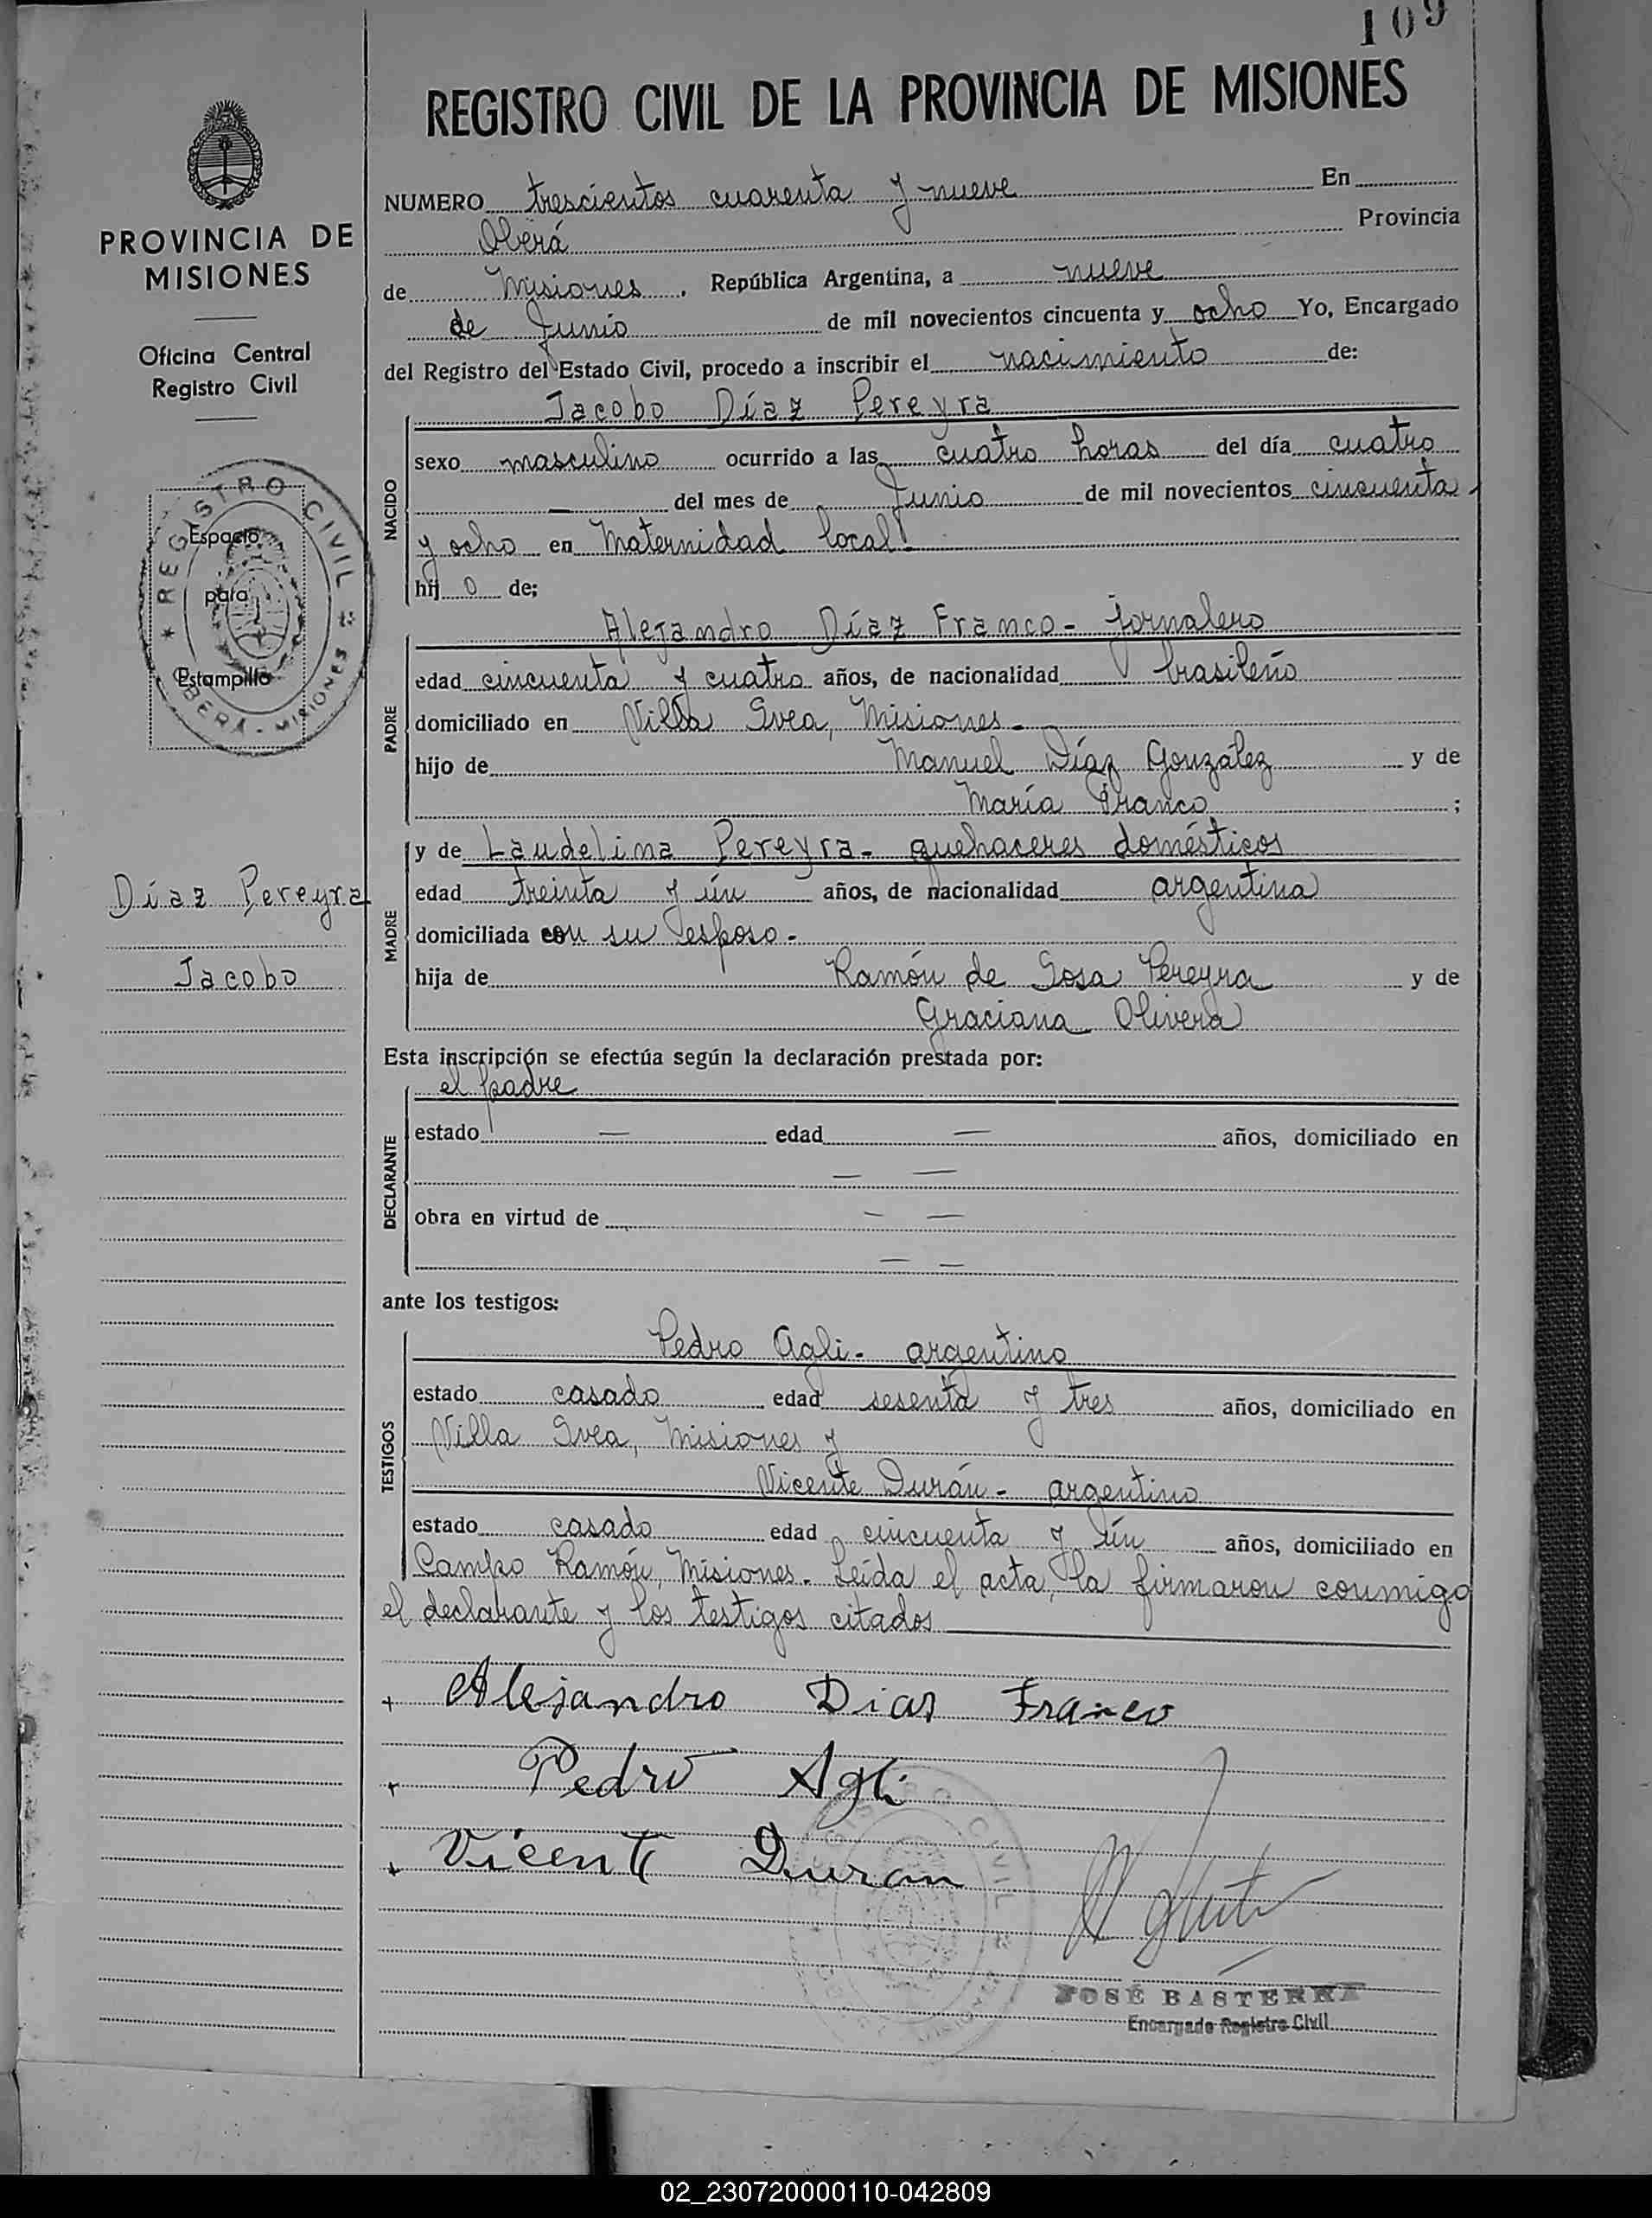 109
REGISTRO CIVIL DE LA PROVINCIA DE MISIONES
PROVINCIA DE
MISIONES
Oficina Central
Registro Civil
REGISTRO CIVIL
OBERÁ - MISIONES
Espacio
para
Estampilla
Díaz Pereyra
Jacobo
NUMERO trescientos cuarenta y nueve En
Oberá Provincia
de Misiones, República Argentina, a nueve
de Junio de mil novecientos cincuenta y ocho Yo, Encargado
del Registro del Estado Civil, procedo a inscribir el nacimiento de:
NACIDO
Jacobo Díaz Pereyra
sexo masculino ocurrido a las cuatro horas del día cuatro
— del mes de Junio de mil novecientos cincuenta
y ocho en Maternidad local.
hij o de;
PADRE
Alejandro Díaz Franco - jornalero
edad cincuenta y cuatro años, de nacionalidad brasileño
domiciliado en Villa Svea, Misiones -
hijo de Manuel Díaz González y de
María Franco ;
MADRE
y de Laudelina Pereyra - quehaceres domésticos
edad treinta y ún años, de nacionalidad argentina
domiciliada con su esposo -
hija de Ramón de Sosa Pereyra y de
Graciana Olivera
Esta inscripción se efectúa según la declaración prestada por:
DECLARANTE
el padre
estado — edad — años, domiciliado en
— —
obra en virtud de — —
— —
ante los testigos:
TESTIGOS
Pedro Agli - argentino
estado casado edad sesenta y tres años, domiciliado en
Villa Svea, Misiones y
Vicente Durán - argentino
estado casado edad cincuenta y ún años, domiciliado en
Campo Ramón, Misiones. Leída el acta, la firmaron conmigo
el declarante y los testigos citados
+ Alejandro Dias Franco
+ Pedro Agli
+ Vicente Duran
JOSÉ BASTERRA
Encargado Registro Civil
02_230720000110-042809